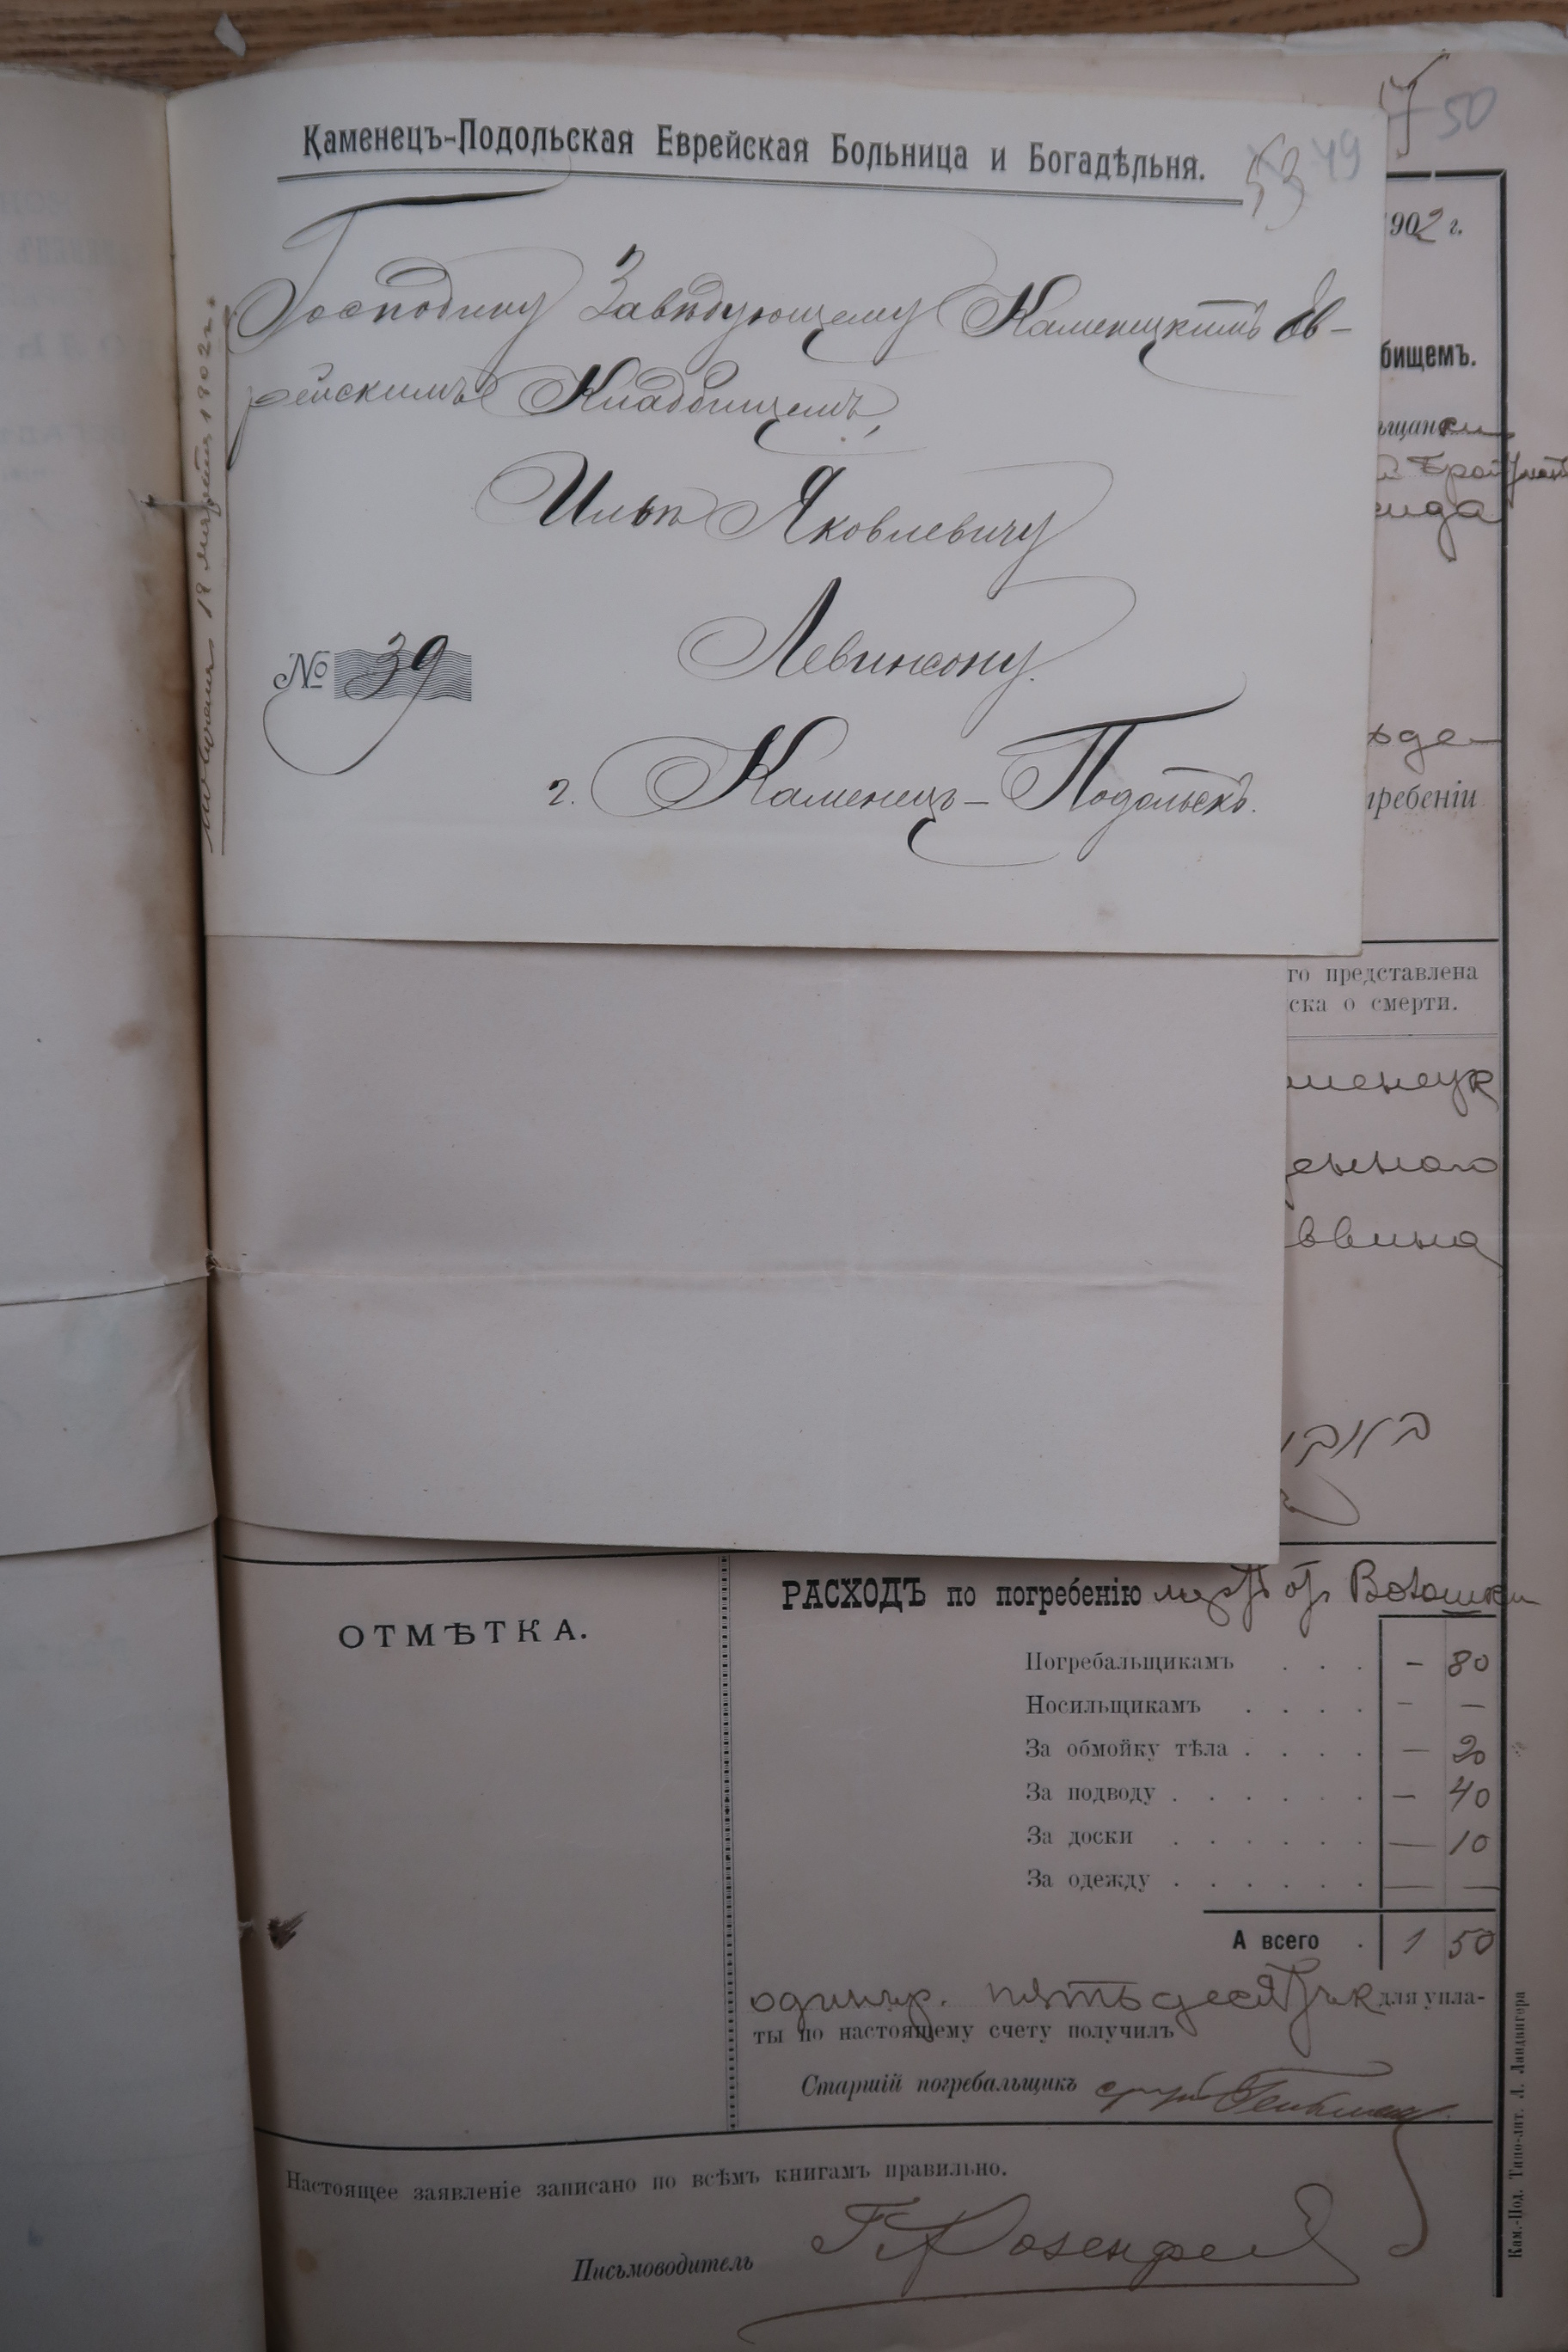 Каменецъ-Подольская Еврейская Больница и Богадѣльня.
53 49
50
Господину Завѣдующему Каменецкимъ Ев-
рейскимъ Кладбищемъ,
Ильѣ Яковлевичу
Левинсону.
№ 39
г. Каменецъ-Подольскъ.
18 марта 1902 г.
1902 г.
бищемъ.
ѣщанки
жде-
гребеніи
го представлена
ска о смерти.
менецк
еннаго
ввина
ОТМѢТКА.
РАСХОДЪ по погребенію Волошки
Погребальщикамъ . . . — 80
Носильщикамъ . . . . — —
За обмойку тѣла . . . . — 20
За подводу . . . . . . — 40
За доски . . . . . . — 10
За одежду . . . . . . — —
А всего . 1 50
одинъ р. пятьдесятъ к для упла-
ты по настоящему счету получилъ
Старшій погребальщикъ
Настоящее заявленіе записано по всѣмъ книгамъ правильно.
Письмоводитель Г. Розенфел
Кам.-Под. Типо-лит. Л. Ландвигера